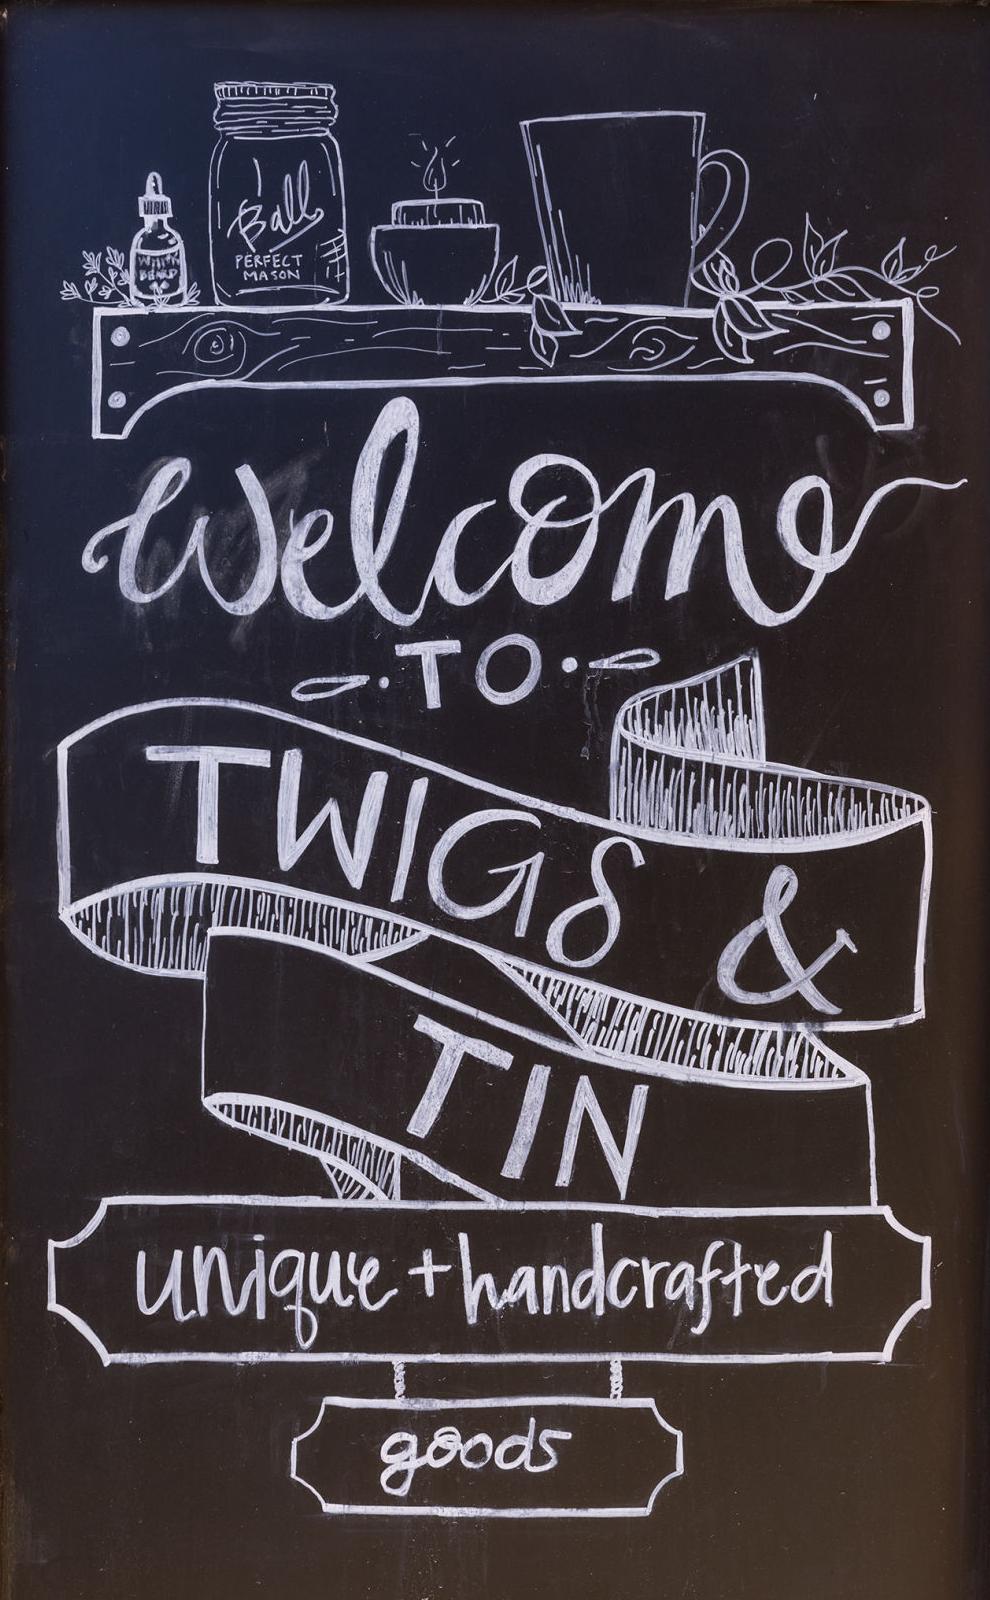 Ball
PERFECT
MASON
Welcome
TO
TWIGS &
TIN
unique + handcrafted
goods